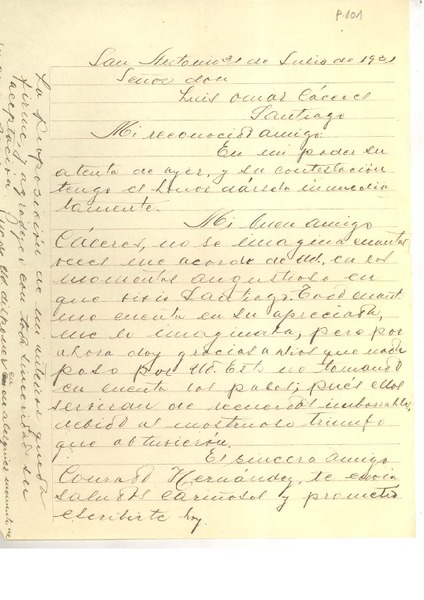 P.001
San Antonio 31 de Julio de 1931
Señor don
Luis Omar Cáceres
Santiago
Mi reconocido amigo:
En mi poder su
atenta de ayer, y su contestación
tengo el honor dársela inmedia
tamente.
Mi buen amigo
Cáceres, no se imagina cuantas
veces me acorde de Ud, en los
momentos angustiosos en
que vivió Santiago. Todo cuant
me cuenta en su apreciada,
me lo imaginaba, pero por
ahora doy gracias a Dios que nada
paso por Ud. Esto no tomando
en cuenta los palos; pués ellos
serviran de recuerdo imborrable,
debido al triunfo
que obtuvierón.
El sincero amigo
Conrado Hernández, te envia
saludos cariñosos y prometio
escribirte hoy.
La proposición de mi autoria queda
firme, y agradezco con toda sinceridad su
aceptación.